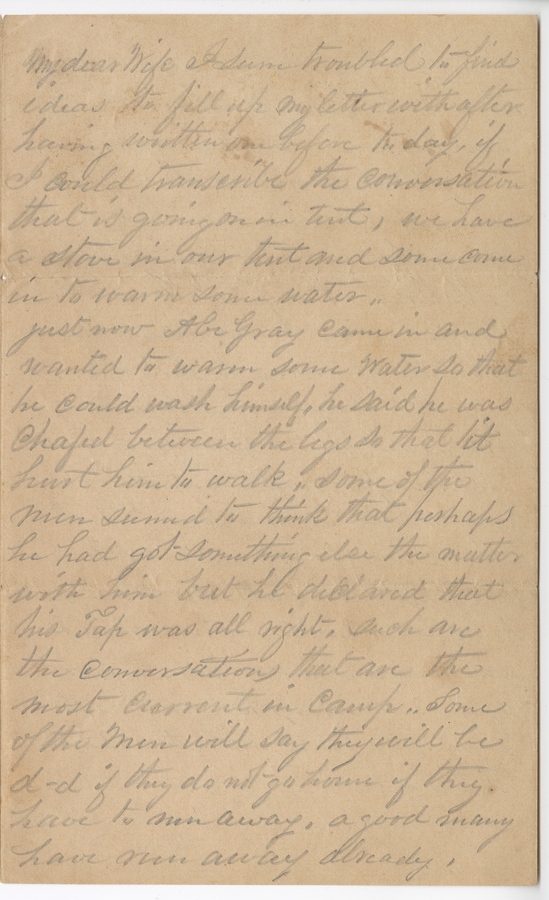 My dear Wife I seem troubled to find
ideas to fill up my letter with after
having written one before to day, if
I could transcribe the conversation
that is going on in tent, we have
a stove in our tent and some come
in to warm some water,,
just now Abe Gray came in and
wanted to warm some Water so that
he could wash himself, he said he was
Chafed between the legs so that it
hurt him to walk,, some of the
men seemed to think that perhaps
he had got something else the matter
with him but he declared that
his Tap was all right, such are
the conversation that are the
most Current in Camp,, Some
of the Men will say they will be
d-d if they do not go home if they
have to run away, a good many
have run away already,